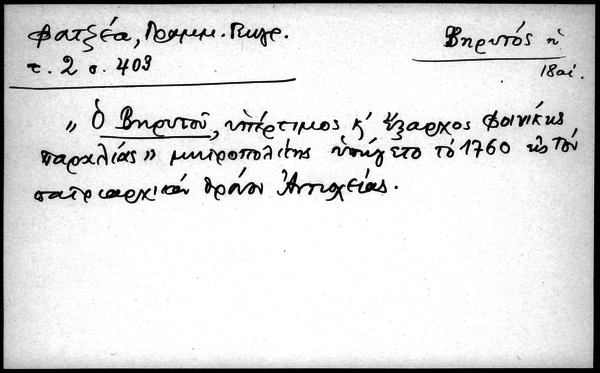 Φατζέα, Γραμμ. Γεωγρ.
τ. 2 σ. 403
Βηρυτός ἡ
18 αἰ.
„ Ὁ Βηρυτοῦ, ὑπέρτιμος κ' ἔξαρχος Φοινίκης
παραλίας" μητροπολίτης ὑπήγετο τὸ 1760 εἰς τὸν
πατριαρχικὸν θρόνον Ἀντιοχείας.